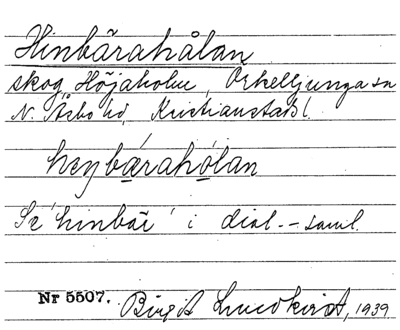 Hinbärahålan
skog, Höjaholm, Örkelljunga sn
N. Åsbo hd, Kristianstads l.
henbærahólan
Se 'hinbär' i dial.-saml.
Nr 5507. Birgit Lundkvist, 1939